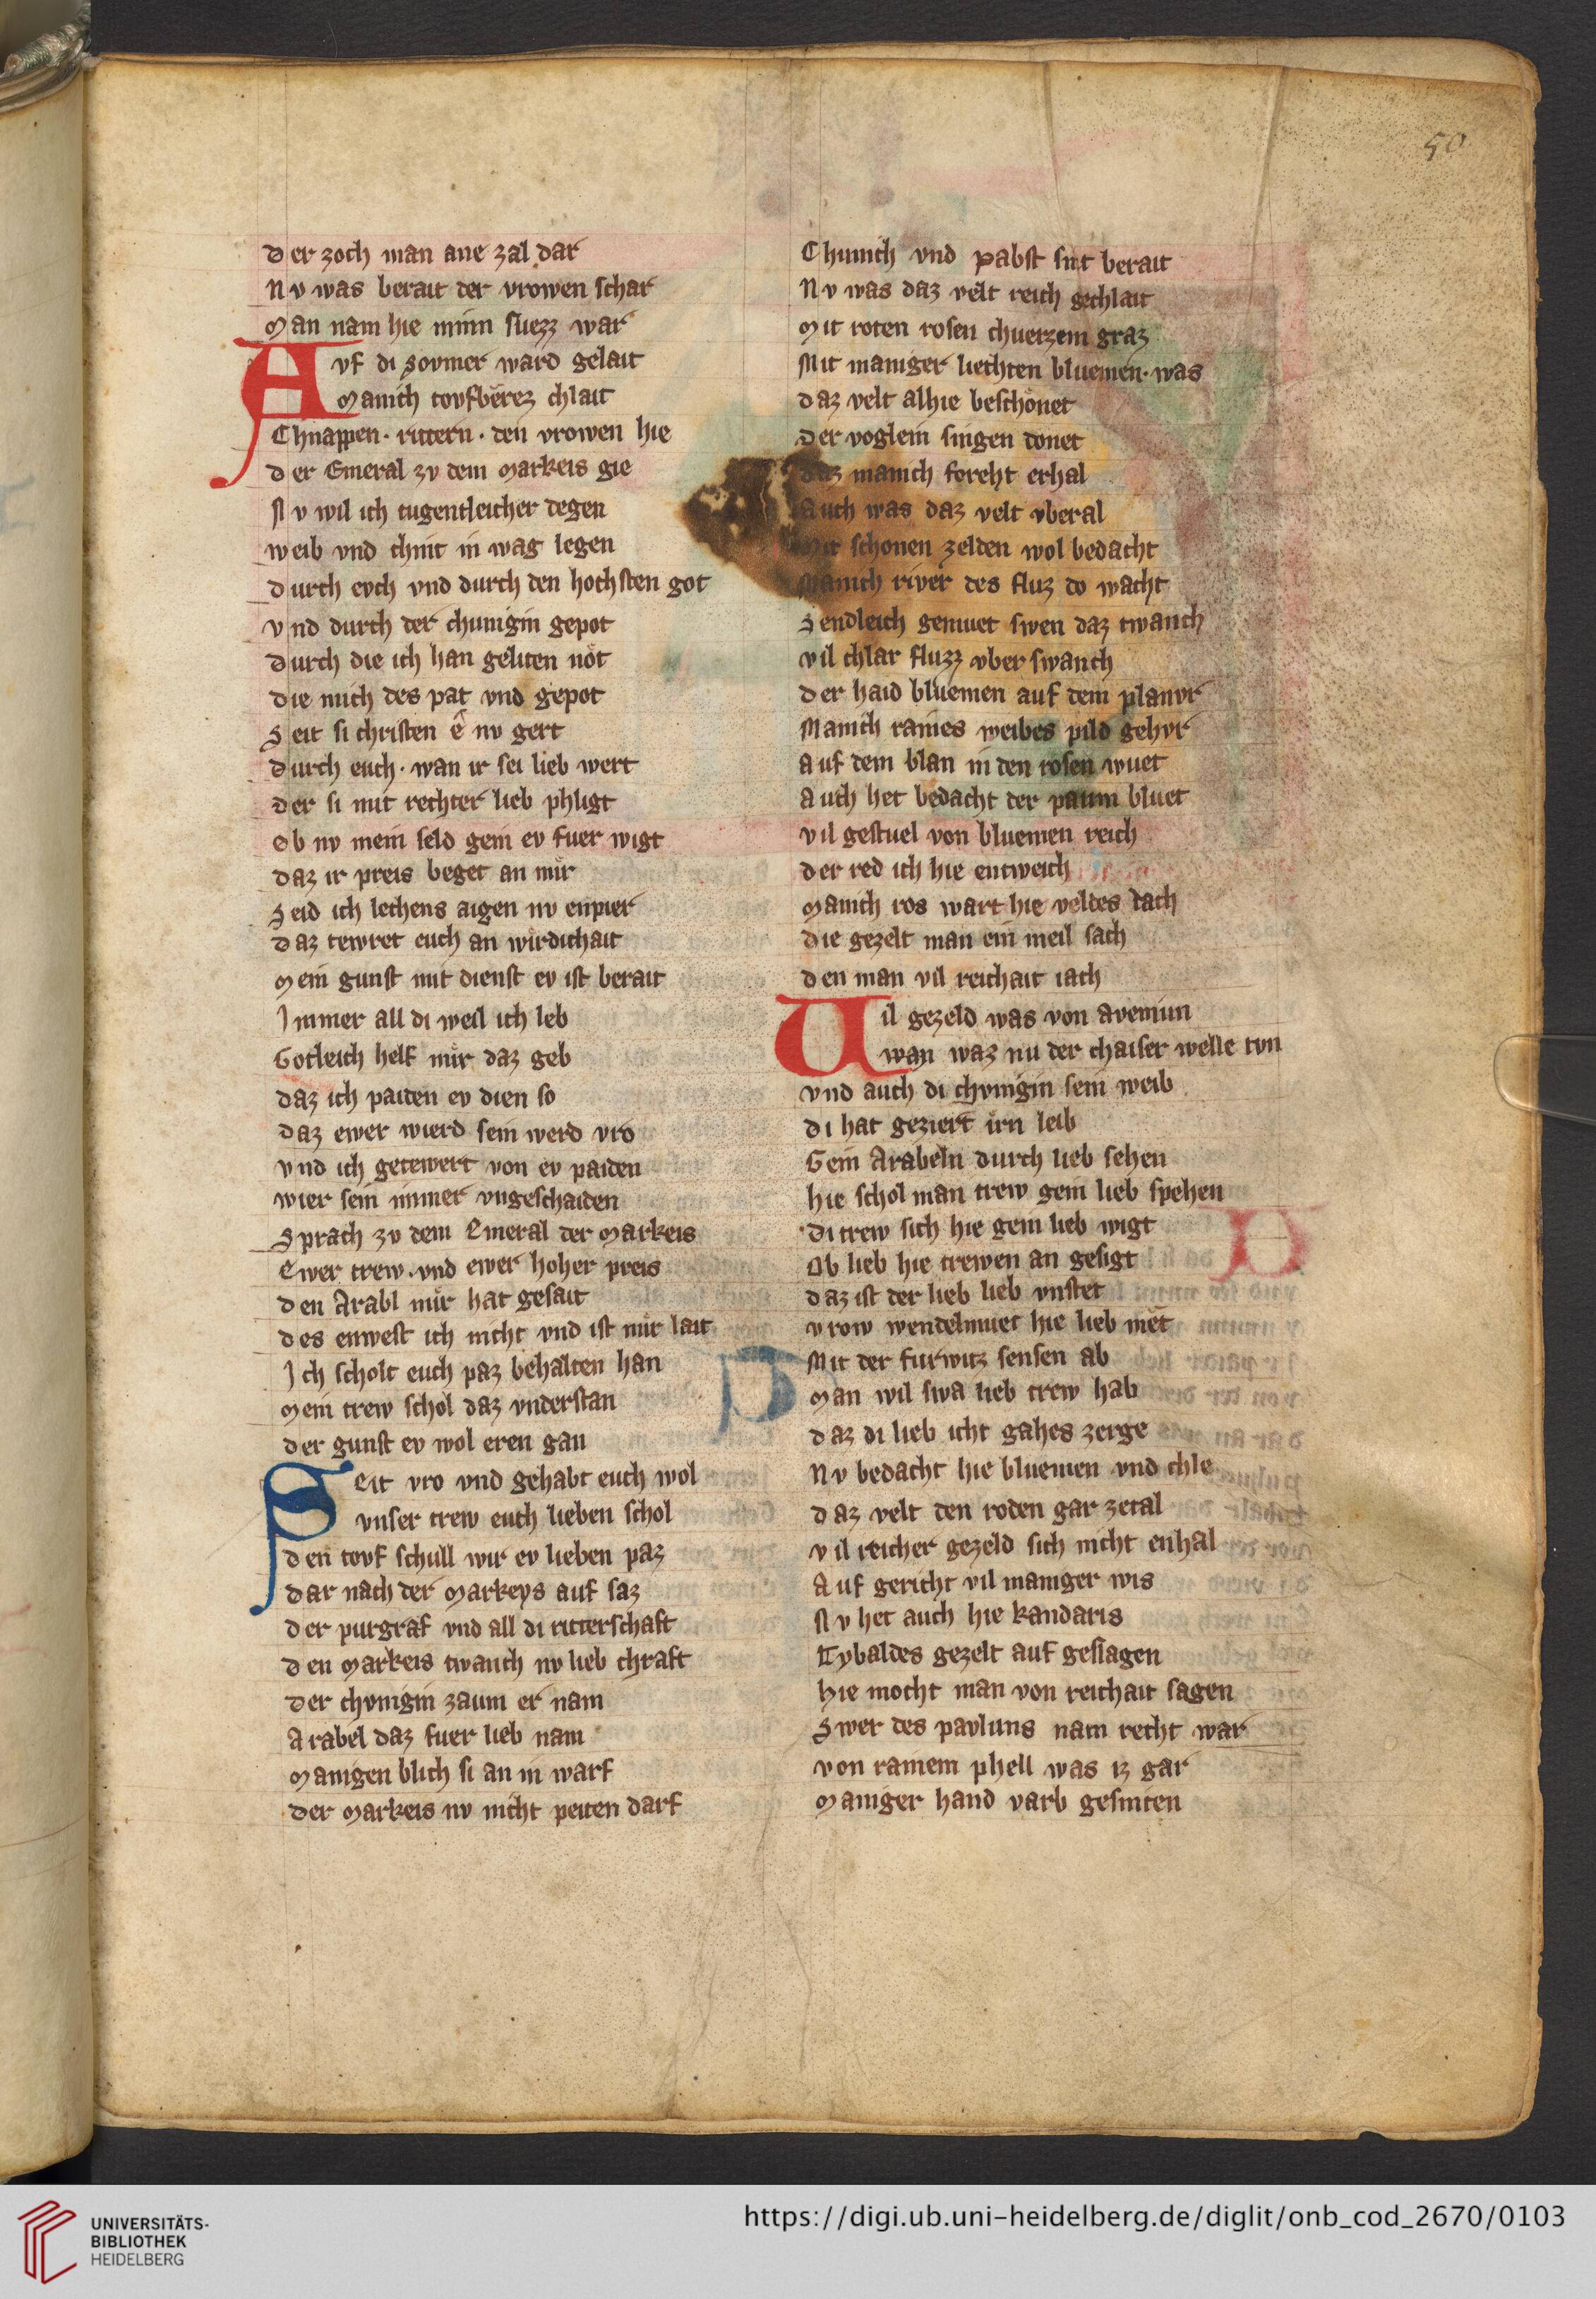 50
Der zoch man ane zal dar
Nv was berait der vrowen schar
Man nam hie minn suezz war
Avf di sovmer ward gelait
Manich tovfberez chlait
Chnappen · rittern · den vrowen hie
Der Emeral zv dem Markeis gie
Nv wil ich tugentleicher degen
weib vnd chint in wag legen
Durch evch vnd durch den hochsten got
Vnd durch der chunigin gepot
Durch die ich han geliten not
Die mich des pat vnd gepot
Seit si christen ê nv gert
Durch euch · wan ir sei lieb wert
Der si mit rechter lieb phligt
Ob nv mein seld gein ev fuer wigt
Daz ir preis beget an mir
Seid ich lechens aigen nv enpier
Daz tewret euch an wirdichait
Mein gunst mit dienst ev ist berait
Immer all di weil ich leb
Gotleich helf mir daz geb
Daz ich paiden ev dien so
Daz ewer wierd sein werd vro
Vnd ich getewert von ev paiden
wier sein immer vngeschaiden
Sprach zv dem Emeral der Markeis
Ewer trew · vnd ewer hoher preis
Den Arabl mir hat gesait
Des enwest ich nicht vnd ist mir lait
Ich scholt euch paz behalten han
Mein trew schol daz vnderstan
Der gunst ev wol eren gan
Seit vro vnd gehabt euch wol
vnser trew euch lieben schol
Den tovf schull wir ev lieben paz
Dar nach der Markeys auf saz
Der purgraf vnd all di ritterschaft
Den Markeis twanch nv lieb chraft
Der chvnigin zaum er nam
Arabel daz fuer lieb nam
Manigen blich si an in warf
Der Markeis nv nicht peiten darf
Chunich vnd pabst sint berait
Nv was daz velt reich gechlait
Mit roten rosen chuerzem graz
Mit maniger liechten bluemen · was
Daz velt alhie beschonet
Der voglein singen donet
Daz manich foreht erhal
Auch was daz velt vberal
Mit schonen zelden wol bedacht
Manich river des fluz do wacht
Sendleich gemuet swen daz twanch
Vil chlar fluzz vber swanch
Der haid bluemen auf dem planvr
Manich raines weibes pild gehvr
Auf dem blan in den rosen wuet
Auch het bedacht der paum bluet
Vil gestuel von bluemen reich
Der red ich hie entweich
Manich ros wart hie veldes dach
Die gezelt man ein meil sach
Den man vil reichait iach
Uil gezeld was von avemun
wan waz nu der chaiser welle tvn
Vnd auch di chvnigin sein weib
Di hat geziert irn leib
Gein Arabeln durch lieb sehen
Hie schol man trew gein lieb spehen
Di trew sich hie gein lieb wigt
Ob lieb hie trewen an gesigt
Daz ist der lieb lieb vnstet
Vrow wendelmuet hie lieb met
Mit der furwitz sensen ab
Man wil swa lieb trew hab
Daz di lieb icht gahes zerge
Nv bedacht hie bluemen vnd chle
Daz velt den roden gar zetal
Vil reicher gezeld sich nicht enhal
Auf gericht vil maniger wis
Nv het auch hie kandaris
Tybaldes gezelt auf geslagen
Hie mocht man von reichait sagen
Swer des pavluns nam recht war
Von ramem phell was iz gar
Maniger hand varb gesniten
UNIVERSITÄTS-
BIBLIOTHEK
HEIDELBERG
https://digi.ub.uni-heidelberg.de/diglit/onb_cod_2670/0103